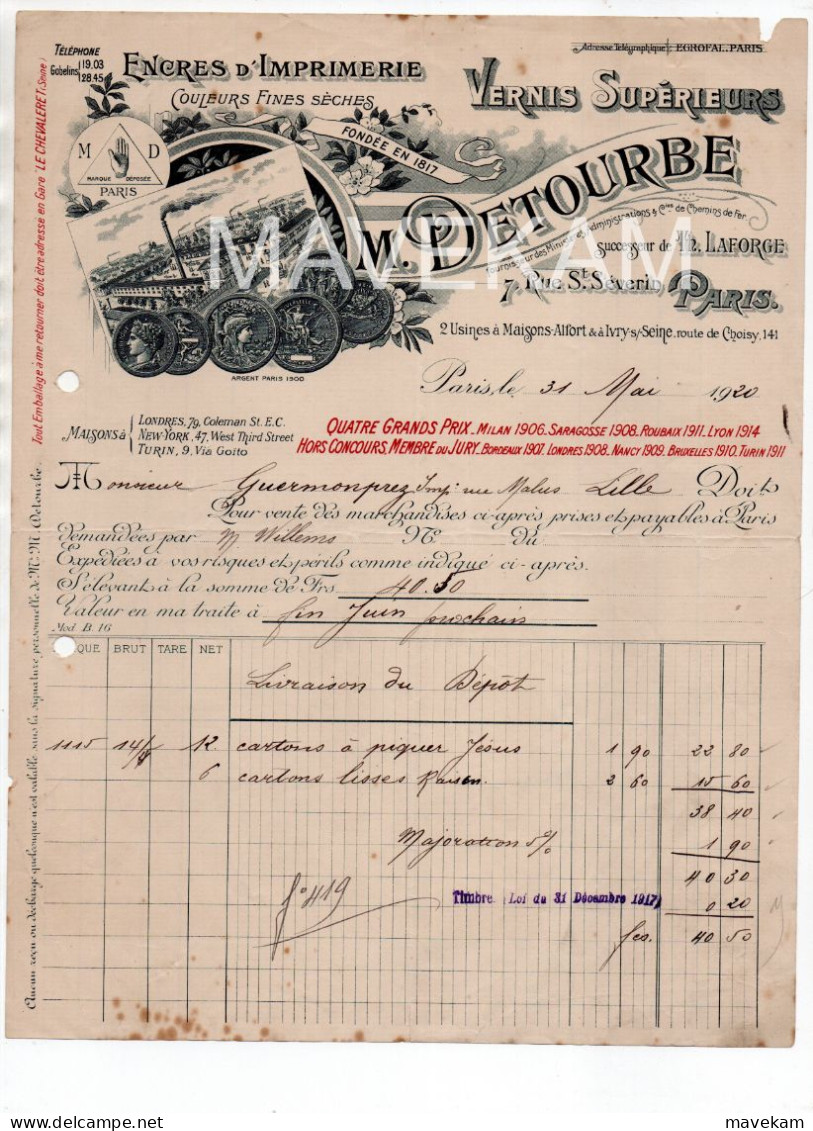 TÉLÉPHONE
Gobelins 19.03
28.45
Adresse Télégraphique: EGROFAL_PARIS
ENCRES D'IMPRIMERIE
VERNIS SUPÉRIEURS
COULEURS FINES SÈCHES
FONDÉE EN 1817
M D
MARQUE DÉPOSÉE
PARIS
M. DETOURBE
Fournisseur des Ministères, Administrations & Cies de Chemins de fer
successeur de TH. LAFORGE
7, Rue St. Séverin PARIS.
2 Usines à Maisons-Alfort & à Ivry s/-Seine, route de Choisy, 141
MAVEKAM
ARGENT PARIS 1900
Paris, le 31 Mai 1920
MAISONS à
LONDRES, 79, Coleman St. E.C.
NEW-YORK, 47, West Third Street
TURIN, 9, Via Goito
QUATRE GRANDS PRIX_MILAN 1906. SARAGOSSE 1908. ROUBAIX 1911. LYON 1914
HORS CONCOURS, MEMBRE DU JURY_BORDEAUX 1907. LONDRES 1908. NANCY 1909. BRUXELLES 1910. TURIN 1911
Monsieur Guermonprez Imp: rue Malus Lille Doit
Pour vente des marchandises ci-après prises et payables à Paris
demandées par M Willems No du
Expédiées à vos risques et périls comme indiqué ci-après.
S'élevant à la somme de Frs 40.50
Valeur en ma traite à fin Juin prochain
Mod. B. 16
QUE BRUT TARE NET
Livraison du Dépôt
1115 14/5 12 cartons à piquer Jésus 1 90 22 80
6 cartons lisses Raisin 2 60 15 60
38 40
Majoration 5% 1 90
40 30
fo 419
Timbre (Loi du 31 Décembre 1917) 0 20
fcs. 40 50
Tout Emballage à me retourner doit être adressé en Gare "LE CHEVALERET (Seine)
Aucun reçu ou décharge quelconque n'est valable sans la signature personnelle de Mr. M. Detourbe
delcampe.net
mavekam